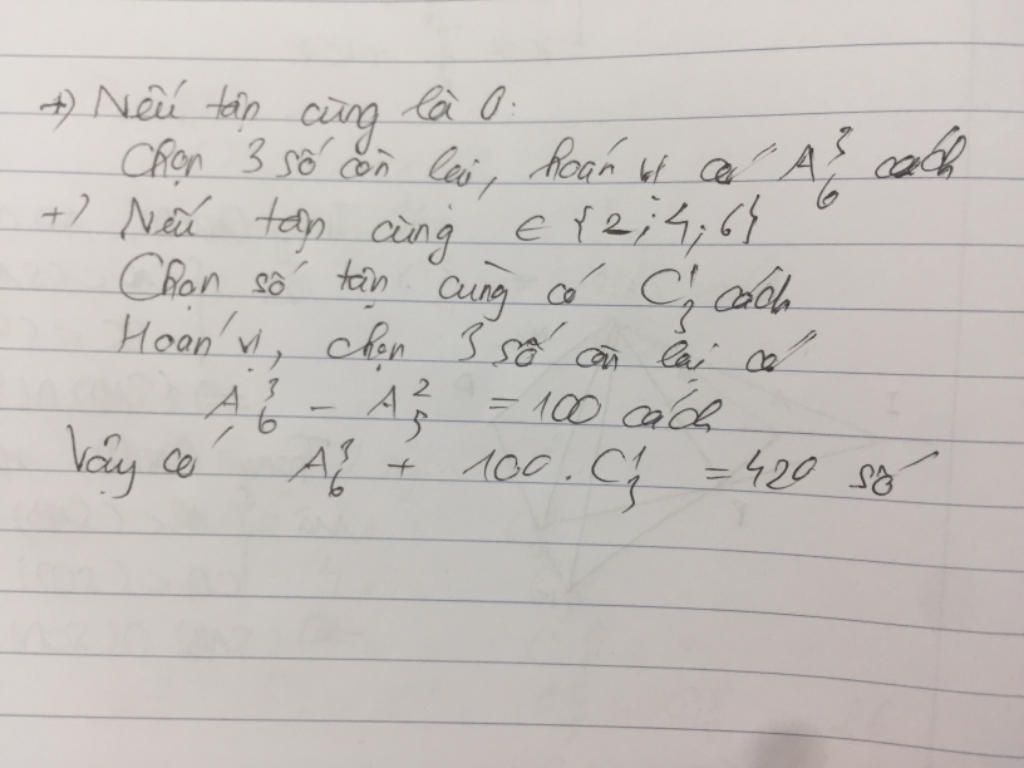 +) Nếu tận cùng là 0:
Chọn 3 số còn lại, hoán vị có A₆³ cách
+) Nếu tận cùng ∈ {2;4;6}
Chọn số tận cùng có C₃¹ cách
Hoán vị, chọn 3 số còn lại có
A₆³ - A₅² = 100 cách
Vậy có A₆³ + 100 . C₃¹ = 420 số